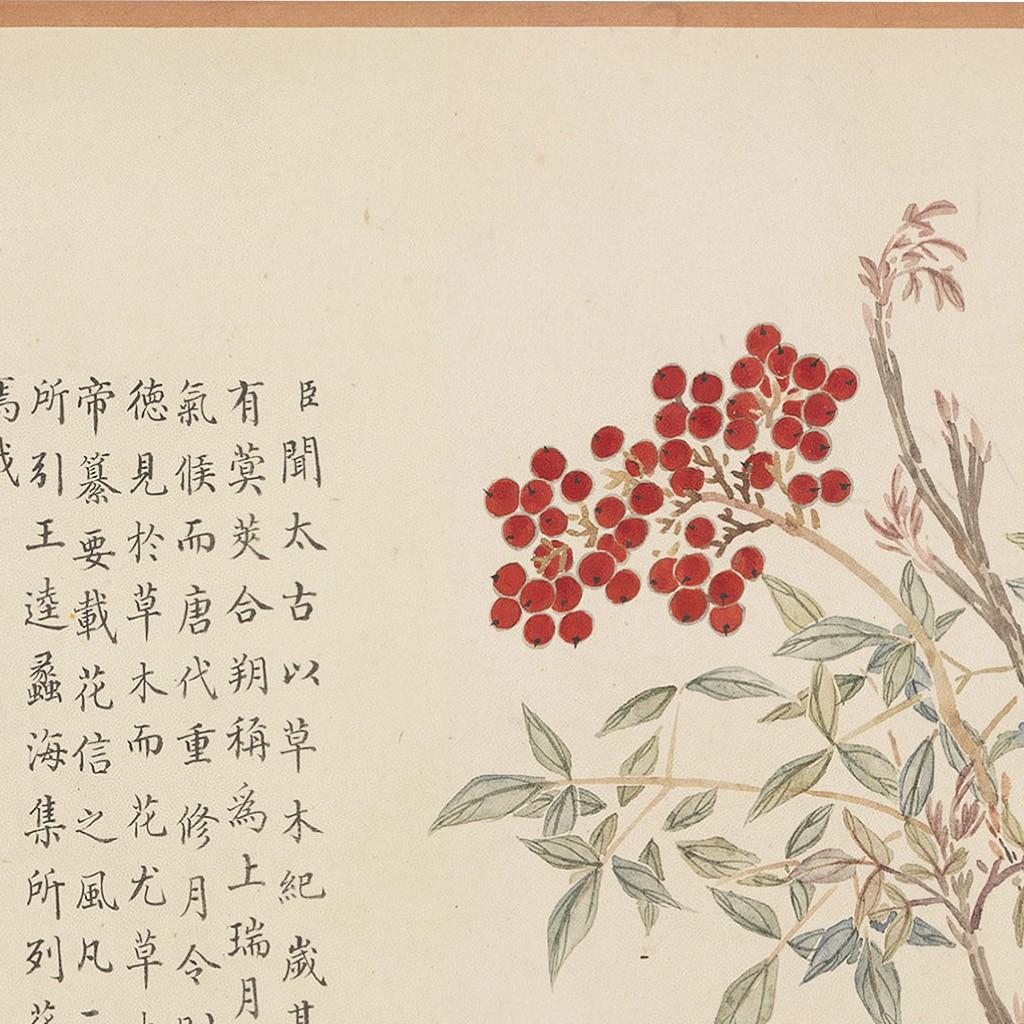 臣聞太古以草木紀歲其
有蓂莢合朔稱為上瑞月
氣候而唐代重修月令則
徳見於草木而花尤草
帝纂要載花信之風凡一
所引王逵蠡海集所列花
焉哉